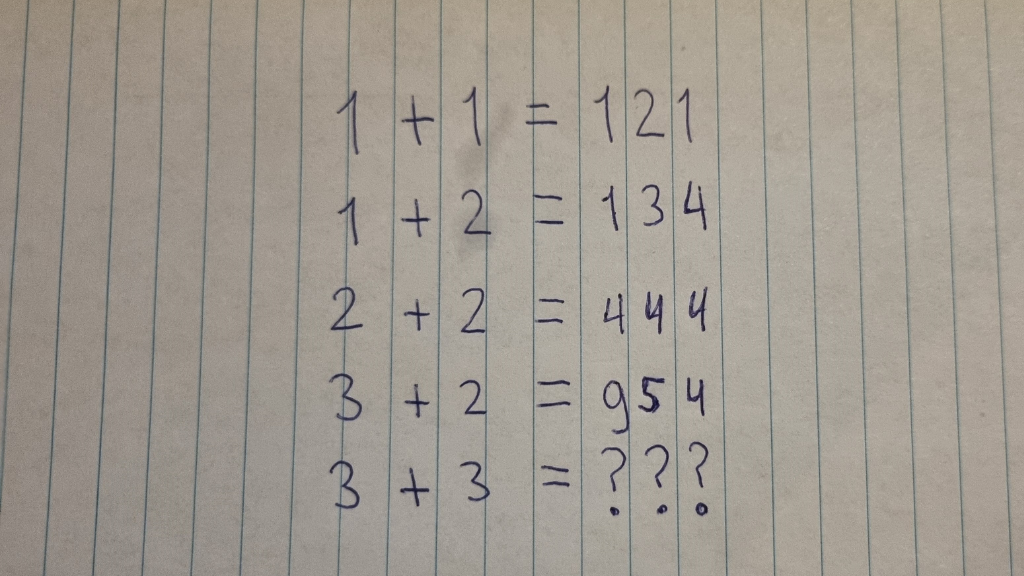 1 + 1 = 121
1 + 2 = 134
2 + 2 = 444
3 + 2 = 954
3 + 3 = ???